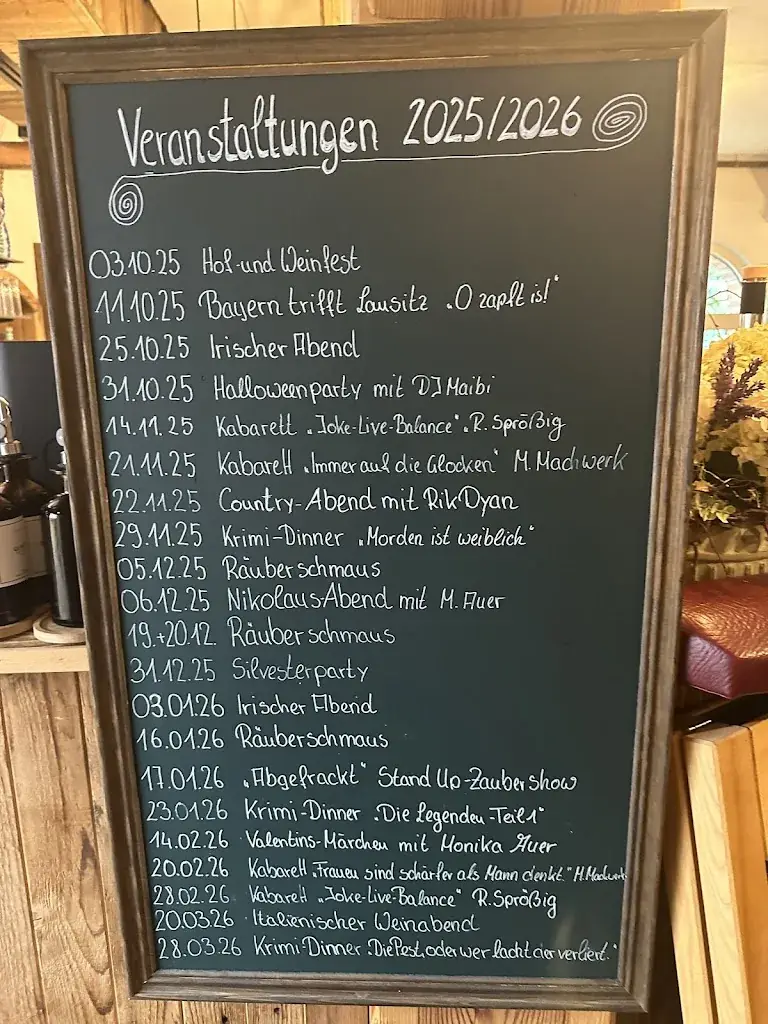 Veranstaltungen 2025/2026
03.10.25 Hof-und Weinfest
11.10.25 Bayern trifft Lausitz „O zapft is!“
25.10.25 Irischer Abend
31.10.25 Halloweenparty mit DJ Maibi
14.11.25 Kabarett „Joke-Live-Balance“ R. Sprößig
21.11.25 Kabarett „Immer auf die Glocken“ M. Machwerk
22.11.25 Country-Abend mit Rik Dyan
29.11.25 Krimi-Dinner „Morden ist weiblich“
05.12.25 Räuberschmaus
06.12.25 Nikolaus-Abend mit M. Auer
19.+20.12. Räuberschmaus
31.12.25 Silvesterparty
03.01.26 Irischer Abend
16.01.26 Räuberschmaus
17.01.26 „Abgefrackt“ Stand Up-Zaubershow
23.01.26 Krimi-Dinner „Die Legenden-Teil 1“
14.02.26 Valentins-Märchen mit Monika Auer
20.02.26 Kabarett „Frauen sind schärfer als Mann denkt.“ M. Machwerk
28.02.26 Kabarett „Joke-Live-Balance“ R. Sprößig
20.03.26 Italienischer Weinabend
28.03.26 Krimi-Dinner „Die Pest, oder wer lacht der verliert.“